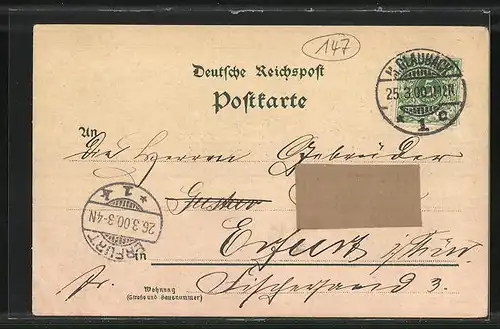 147
Deutsche Reichspost
Postkarte
GLAUCHAU
25.3.00.
* 1 c
An
die Herren Gebrüder
Erfurt i/Thür.
in
Fr. Fischersand 3.
Wohnung
(Straße und Hausnummer)
ERFURT
26.3.00.3-4N
* 1 k